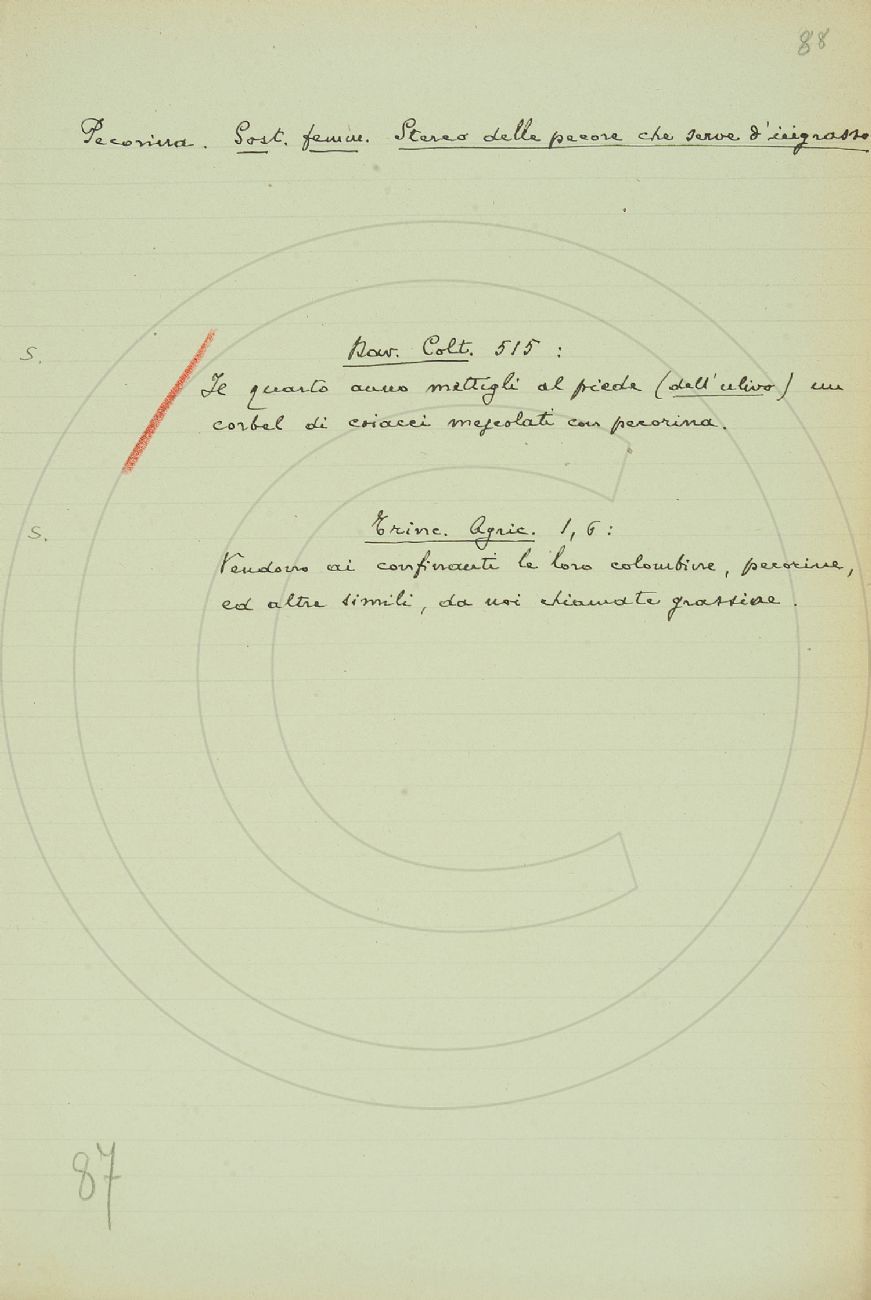 88
Pecorina. Sost. femm. Sterco delle pecore che serve d'ingrasso
S.
Dav. Colt. 515 :
Il quarto anno mettigli al piede (dell'ulivo) un
corbel di coiacci mescolati con pecorina.
S.
Trinc. Agric. 1, 6 :
Vendono ai confinanti le loro colombine, pecorine,
ed altre simili, da noi chiamate grassine.
87